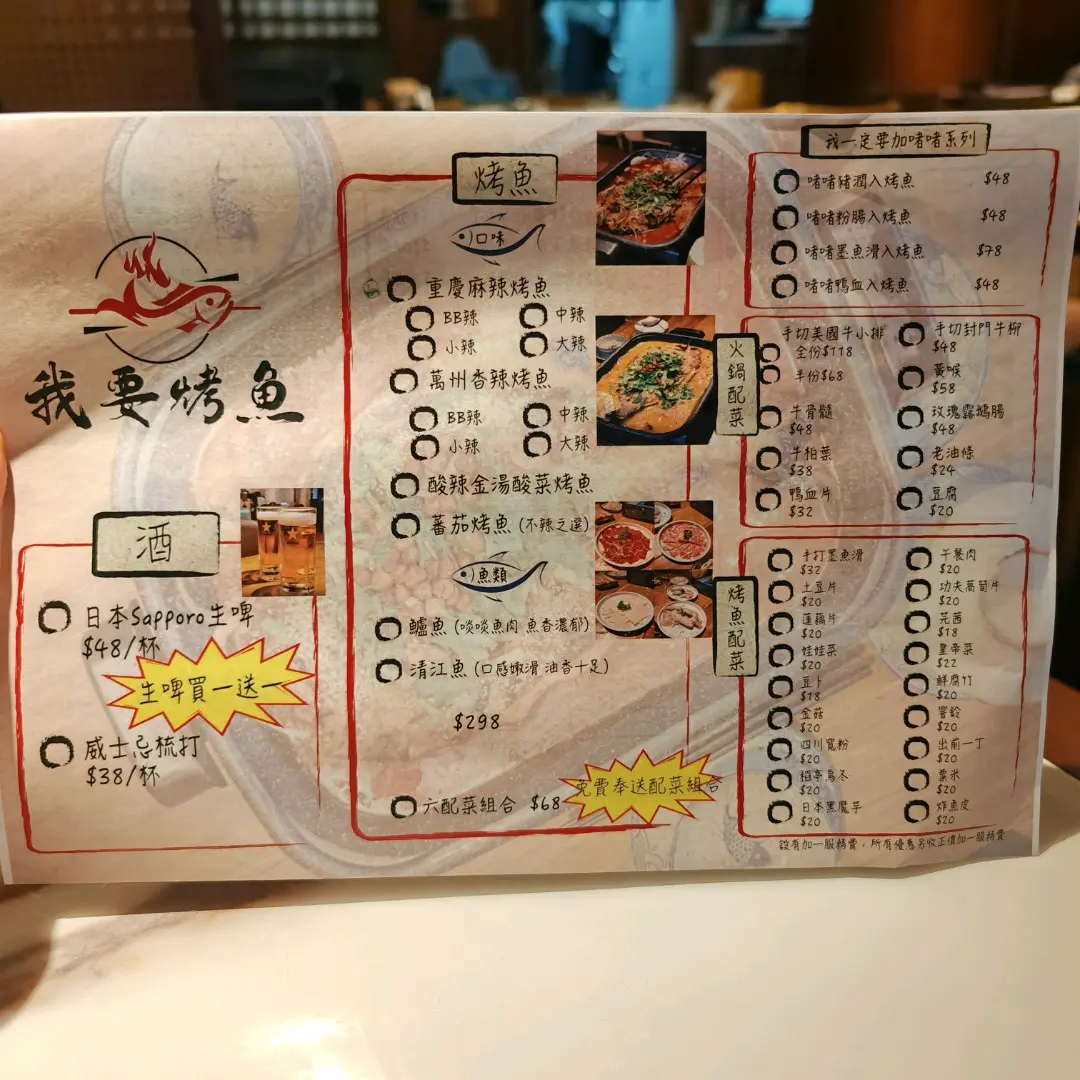 我要烤魚
酒
日本Sapporo生啤
$48/杯
生啤買一送一
威士忌梳打
$38/杯
烤魚
口味
重慶麻辣烤魚
BB辣
中辣
小辣
大辣
萬州香辣烤魚
BB辣
中辣
小辣
大辣
酸辣金湯酸菜烤魚
蕃茄烤魚 (不辣之選)
魚類
鱸魚 (啖啖魚肉 魚香濃郁)
清江魚 (口感嫩滑 油香十足)
$298
六配菜組合 $68
免費奉送配菜組合
我一定要加啫啫系列
啫啫豬潤入烤魚 $48
啫啫粉腸入烤魚 $48
啫啫墨魚滑入烤魚 $78
啫啫鴨血入烤魚 $48
火鍋配菜
手切美國牛小排
全份$118
半份$68
牛骨髓
$48
牛柏葉
$38
鴨血片
$32
手切封門牛柳
$48
黃喉
$58
玫瑰露鴨腸
$48
老油條
$24
豆腐
$20
烤魚配菜
手打墨魚滑
$32
土豆片
$20
蓮藕片
$20
娃娃菜
$20
豆卜
$18
金菇
$20
四川寬粉
$20
稻亭烏冬
$20
日本黑魔芋
$20
午餐肉
$20
功夫萵筍片
$20
芫茜
$18
皇帝菜
$22
鮮腐竹
$20
響鈴
$20
出前一丁
$20
粟米
$20
炸魚皮
$20
設有加一服務費，所有優惠另收正價加一服務費